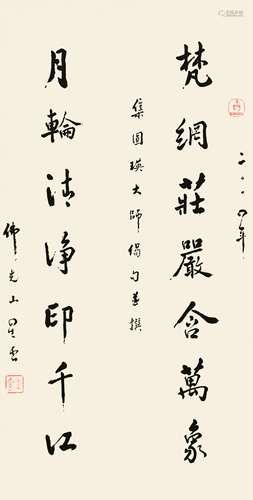 二〇〇四年
梵網莊嚴含萬象
集圓瑛大師偈句並撰
月輪清淨印千江
佛光山星雲